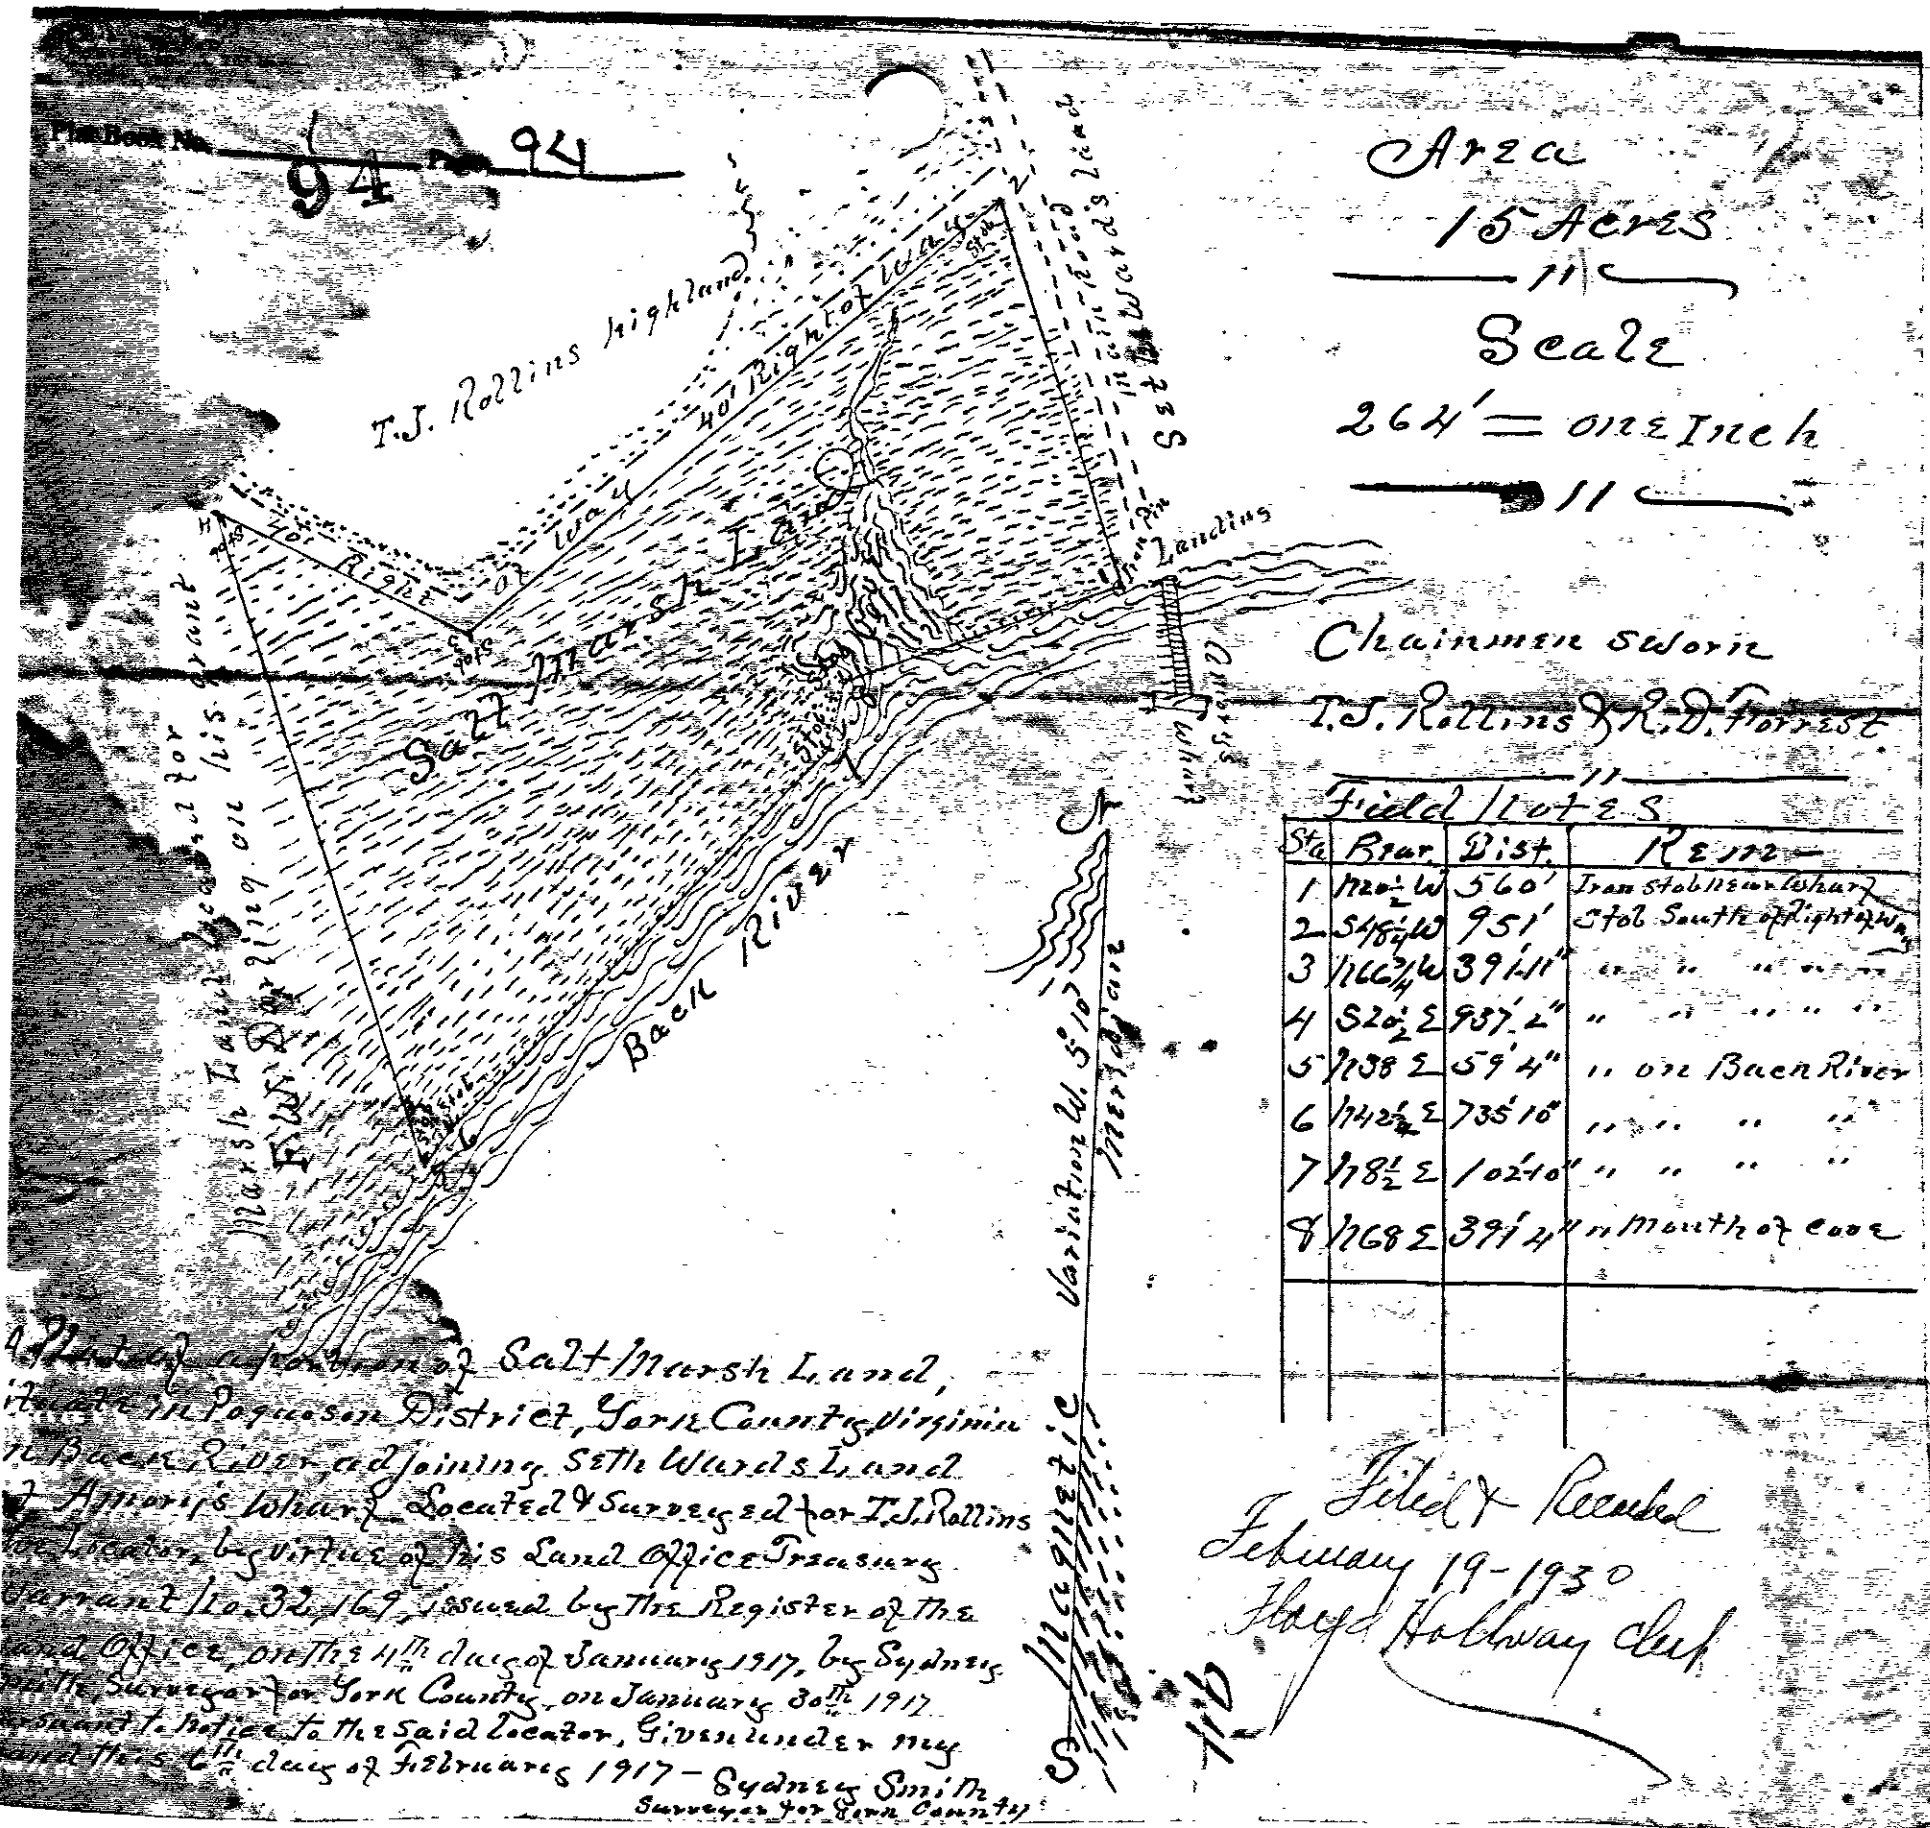 Plat Book No. 1 Page 94
94
T.J. Rollins highland
40' Right of Way
Stob
2
Main Road
Seth Ward's Land
H
Stob
40' Right of Way
Stob
3
Salt Marsh Land
Iron Pin
1
Landing
Amory's Wharf
Stob
Stob
8
7
Marsh Land Located for
F.W. Darling on his grant
Back River
Stob
Stob
5
6
N
Variation W. 5° 10'
S Magnetic Meridian
Area
15 Acres
"
Scale
264' = one Inch
"
Chainmen sworn
T.J. Rollins & R.D. Forrest
"
Field Notes
Sta Bear. Dist. Rem—
1 N20½ W 560' Iron stob near Wharf
2 S48¼ W 951' Stob South of Right of Way
3 N66¾ W 391'.11" " " " " "
4 S20½ E 937'.2" " " " " "
5 N38 E 59'4" " on Back River
6 N42½ E 735'10" " " " "
7 N8½ E 102'10" " " " "
8 N68 E 391'4" " Mouth of cove
A Plat of a portion of Salt Marsh Land,
ituate in Poquoson District, York County, Virginia
n Back River, adjoining Seth Wards Land
Amory's Wharf. Located & Surveyed for T.J. Rollins
Locator, by virtue of his Land Office Treasury
Warrant No. 32,169, issued by the Register of the
and Office, on the 4th day of January 1917, by Sydney
mith, Surveyor for York County, on January 30th 1917
ursuant to notice to the said locator, Given under my
and this 6th day of February 1917 — Sydney Smith
Surveyor for York County
Filed & Recorded
February 19-1930
Floyd Holloway Clerk